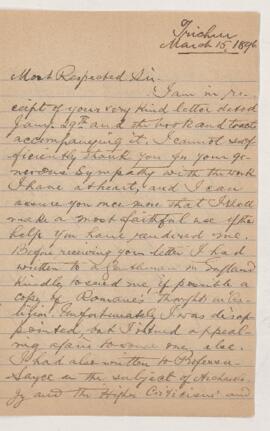 Trichur
March 15, 1896
Most Respected Sir.
I am in re-
ceipt of your very kind letter dated
Jany. 29th and the book and tracts
accompanying it. I cannot suf-
ficiently thank you for your ge-
nerous sympathy with the work
I have at heart, and I can
assure you once more that I shall
make a most faithful use of the
help you have rendered me.
Before receiving your letter I had
written to a gentleman in England
kindly to send me, if possible a
copy of Romanes's Thoughts on Re-
ligion. Unfortunately I was disap-
pointed, but I intend appeal-
ing again to some one else.
I had also written to Professor
Sayce on the subject of Archaeo-
gy and the Higher Criticism and